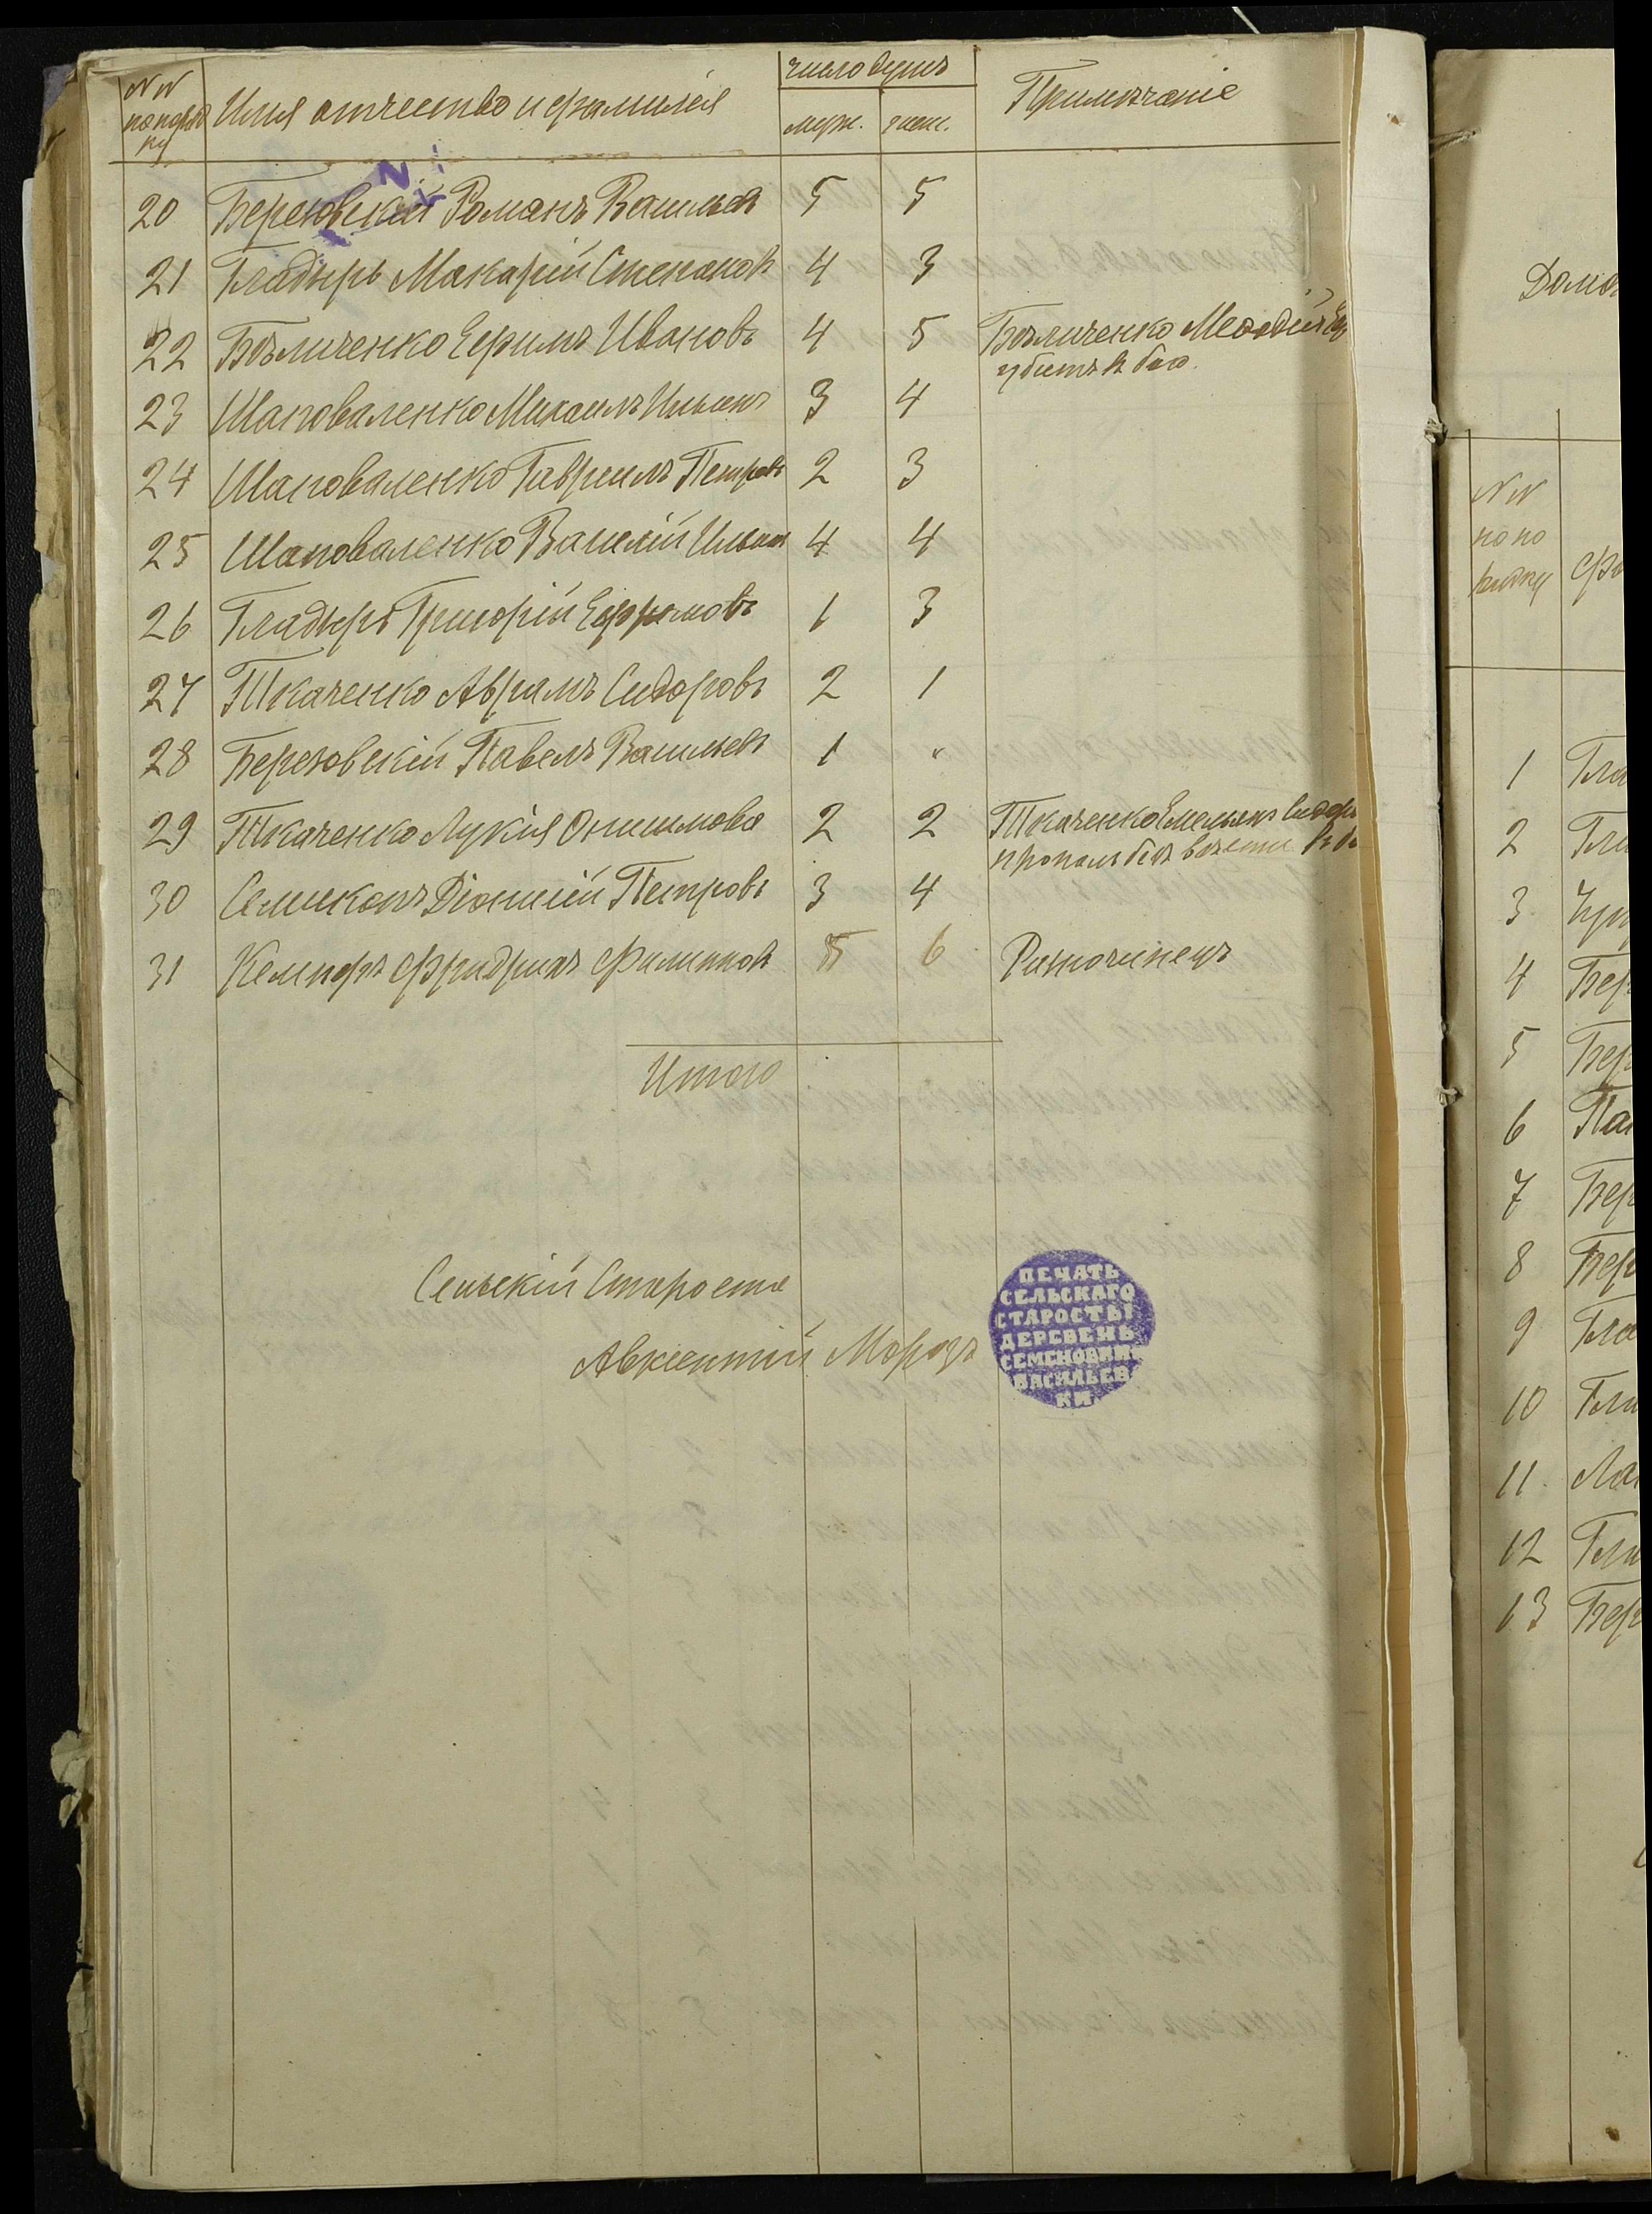 NN
по поряд
ку
Имя отчество и фамилія
число душъ
муж. жен.
Примѣчаніе
20 Березовскій Романъ Васильевъ 5 5
21 Гладырь Макарій Степановъ 4 3
22 Бѣличенко Ефимъ Ивановъ 4 5 Бѣличенко Меѳодій Еф
убитъ въ бою.
23 Шаповаленко Михаилъ Ильинъ 3 4
24 Шаповаленко Гавріилъ Петровъ 2 3
25 Шаповаленко Василій Ильинъ 4 4
26 Гладырь Григорій Ефремовъ 1 3
27 Ткаченко Аврамъ Сидоровъ 2 1
28 Березовскій Павелъ Васильевъ 1 "
29 Ткаченко Лукія Онишмова 2 2 Ткаченко Емельянъ Сидор
пропалъ безъ вѣсти въ бо
30 Семиконъ Діонисій Петровъ 3 4
31 Кемпфъ Фридрихъ Филиповъ 5 6 Разночинецъ
Итого
Сельскій Староста
Авксентій Морозъ
ПЕЧАТЬ
СЕЛЬСКАГО
СТАРОСТЫ
ДЕРЕВЕНЬ
СЕМЕНОВКИ
ВАСИЛЬЕВ
КИ
Домо
NN
по по
рядку
1 Гла
2 Гли
3
4 Бер
5 Бер
6 Па
7 Бер
8 Бер
9 Гла
10 Гли
11. Ла
12 Гли
13 Бер